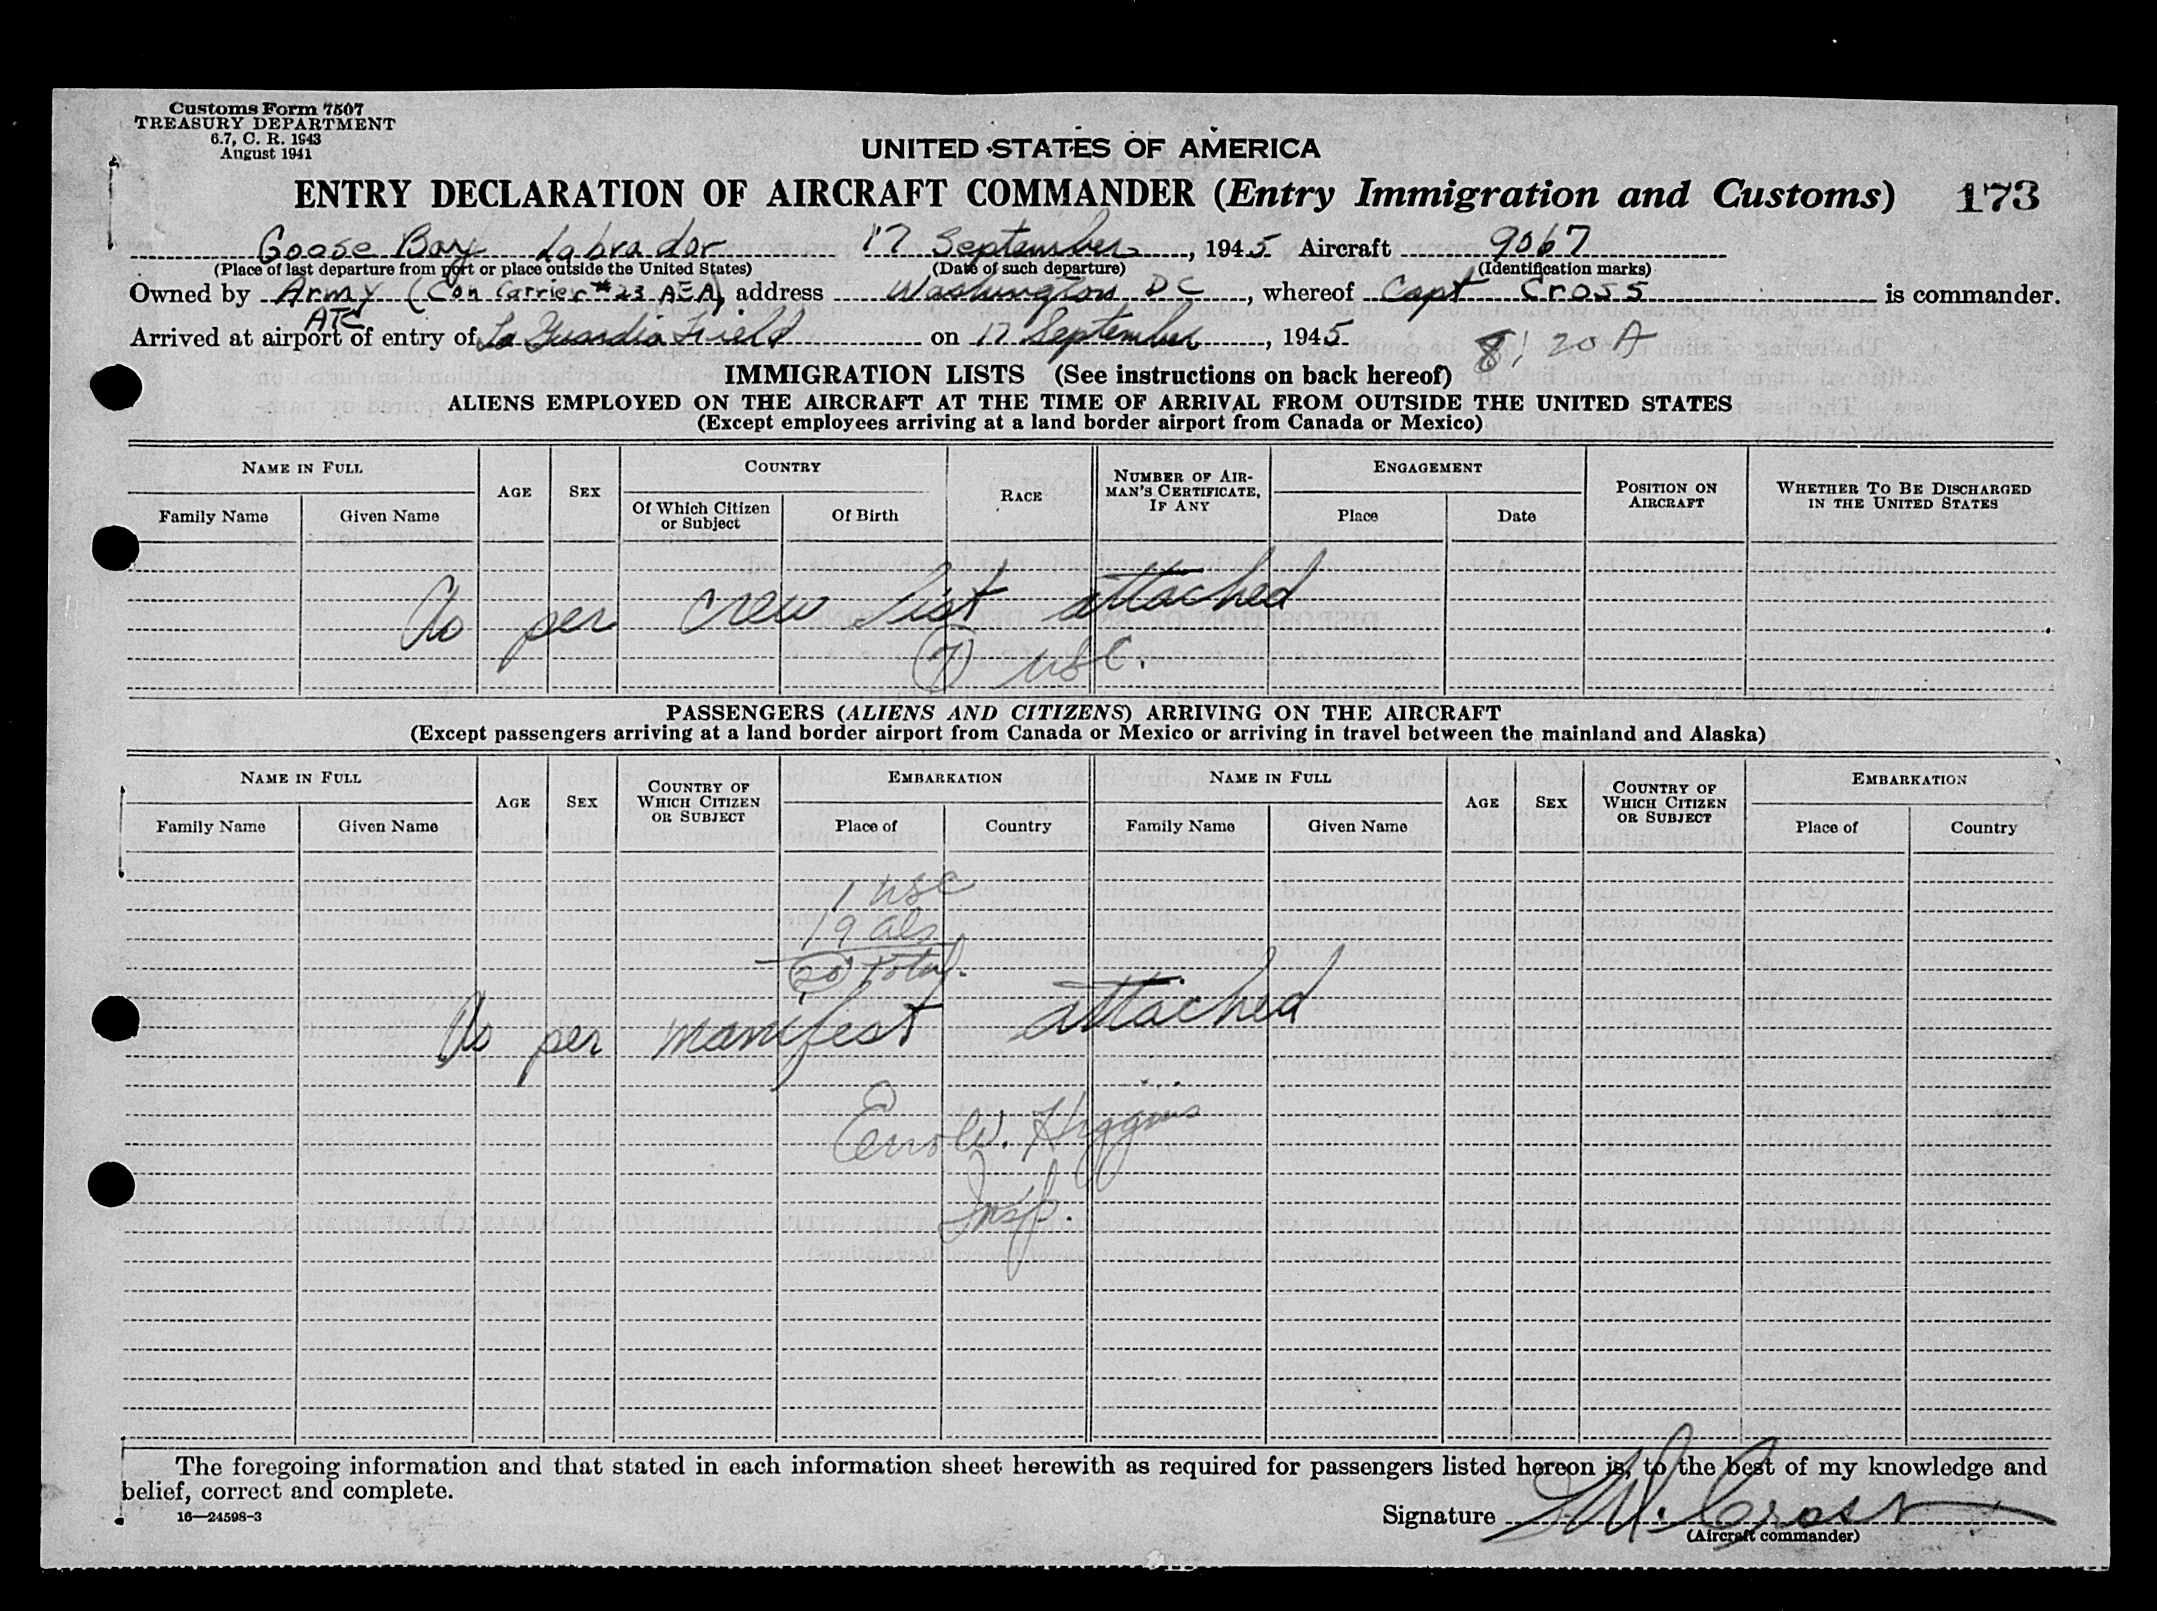 Customs Form 7507
TREASURY DEPARTMENT
6.7, C. R. 1943
August 1941
UNITED STATES OF AMERICA
ENTRY DECLARATION OF AIRCRAFT COMMANDER (Entry Immigration and Customs) 173
Goose Bay Labrador 17 September, 1945 Aircraft 9067
(Place of last departure from port or place outside the United States) (Date of such departure) (Identification marks)
Owned by Army (Con Carrier #23 AEA), address Washington DC, whereof Capt Cross is commander.
ATC
Arrived at airport of entry of La Guardia Field on 17 September, 1945 8:20 A
IMMIGRATION LISTS (See instructions on back hereof)
ALIENS EMPLOYED ON THE AIRCRAFT AT THE TIME OF ARRIVAL FROM OUTSIDE THE UNITED STATES
(Except employees arriving at a land border airport from Canada or Mexico)
NAME IN FULL AGE SEX COUNTRY RACE NUMBER OF AIRMAN'S CERTIFICATE, IF ANY ENGAGEMENT POSITION ON AIRCRAFT WHETHER TO BE DISCHARGED IN THE UNITED STATES
Family Name Given Name Of Which Citizen or Subject Of Birth Place Date
As per crew list attached
(7) USC.
PASSENGERS (ALIENS AND CITIZENS) ARRIVING ON THE AIRCRAFT
(Except passengers arriving at a land border airport from Canada or Mexico or arriving in travel between the mainland and Alaska)
NAME IN FULL AGE SEX COUNTRY OF WHICH CITIZEN OR SUBJECT EMBARKATION NAME IN FULL AGE SEX COUNTRY OF WHICH CITIZEN OR SUBJECT EMBARKATION
Family Name Given Name Place of Country Family Name Given Name Place of Country
1 USC
19 als
(20) total.
As per manifest attached
W. Higgins
Insp.
The foregoing information and that stated in each information sheet herewith as required for passengers listed hereon is, to the best of my knowledge and
belief, correct and complete.
16—24598-3
Signature Cross
(Aircraft commander)